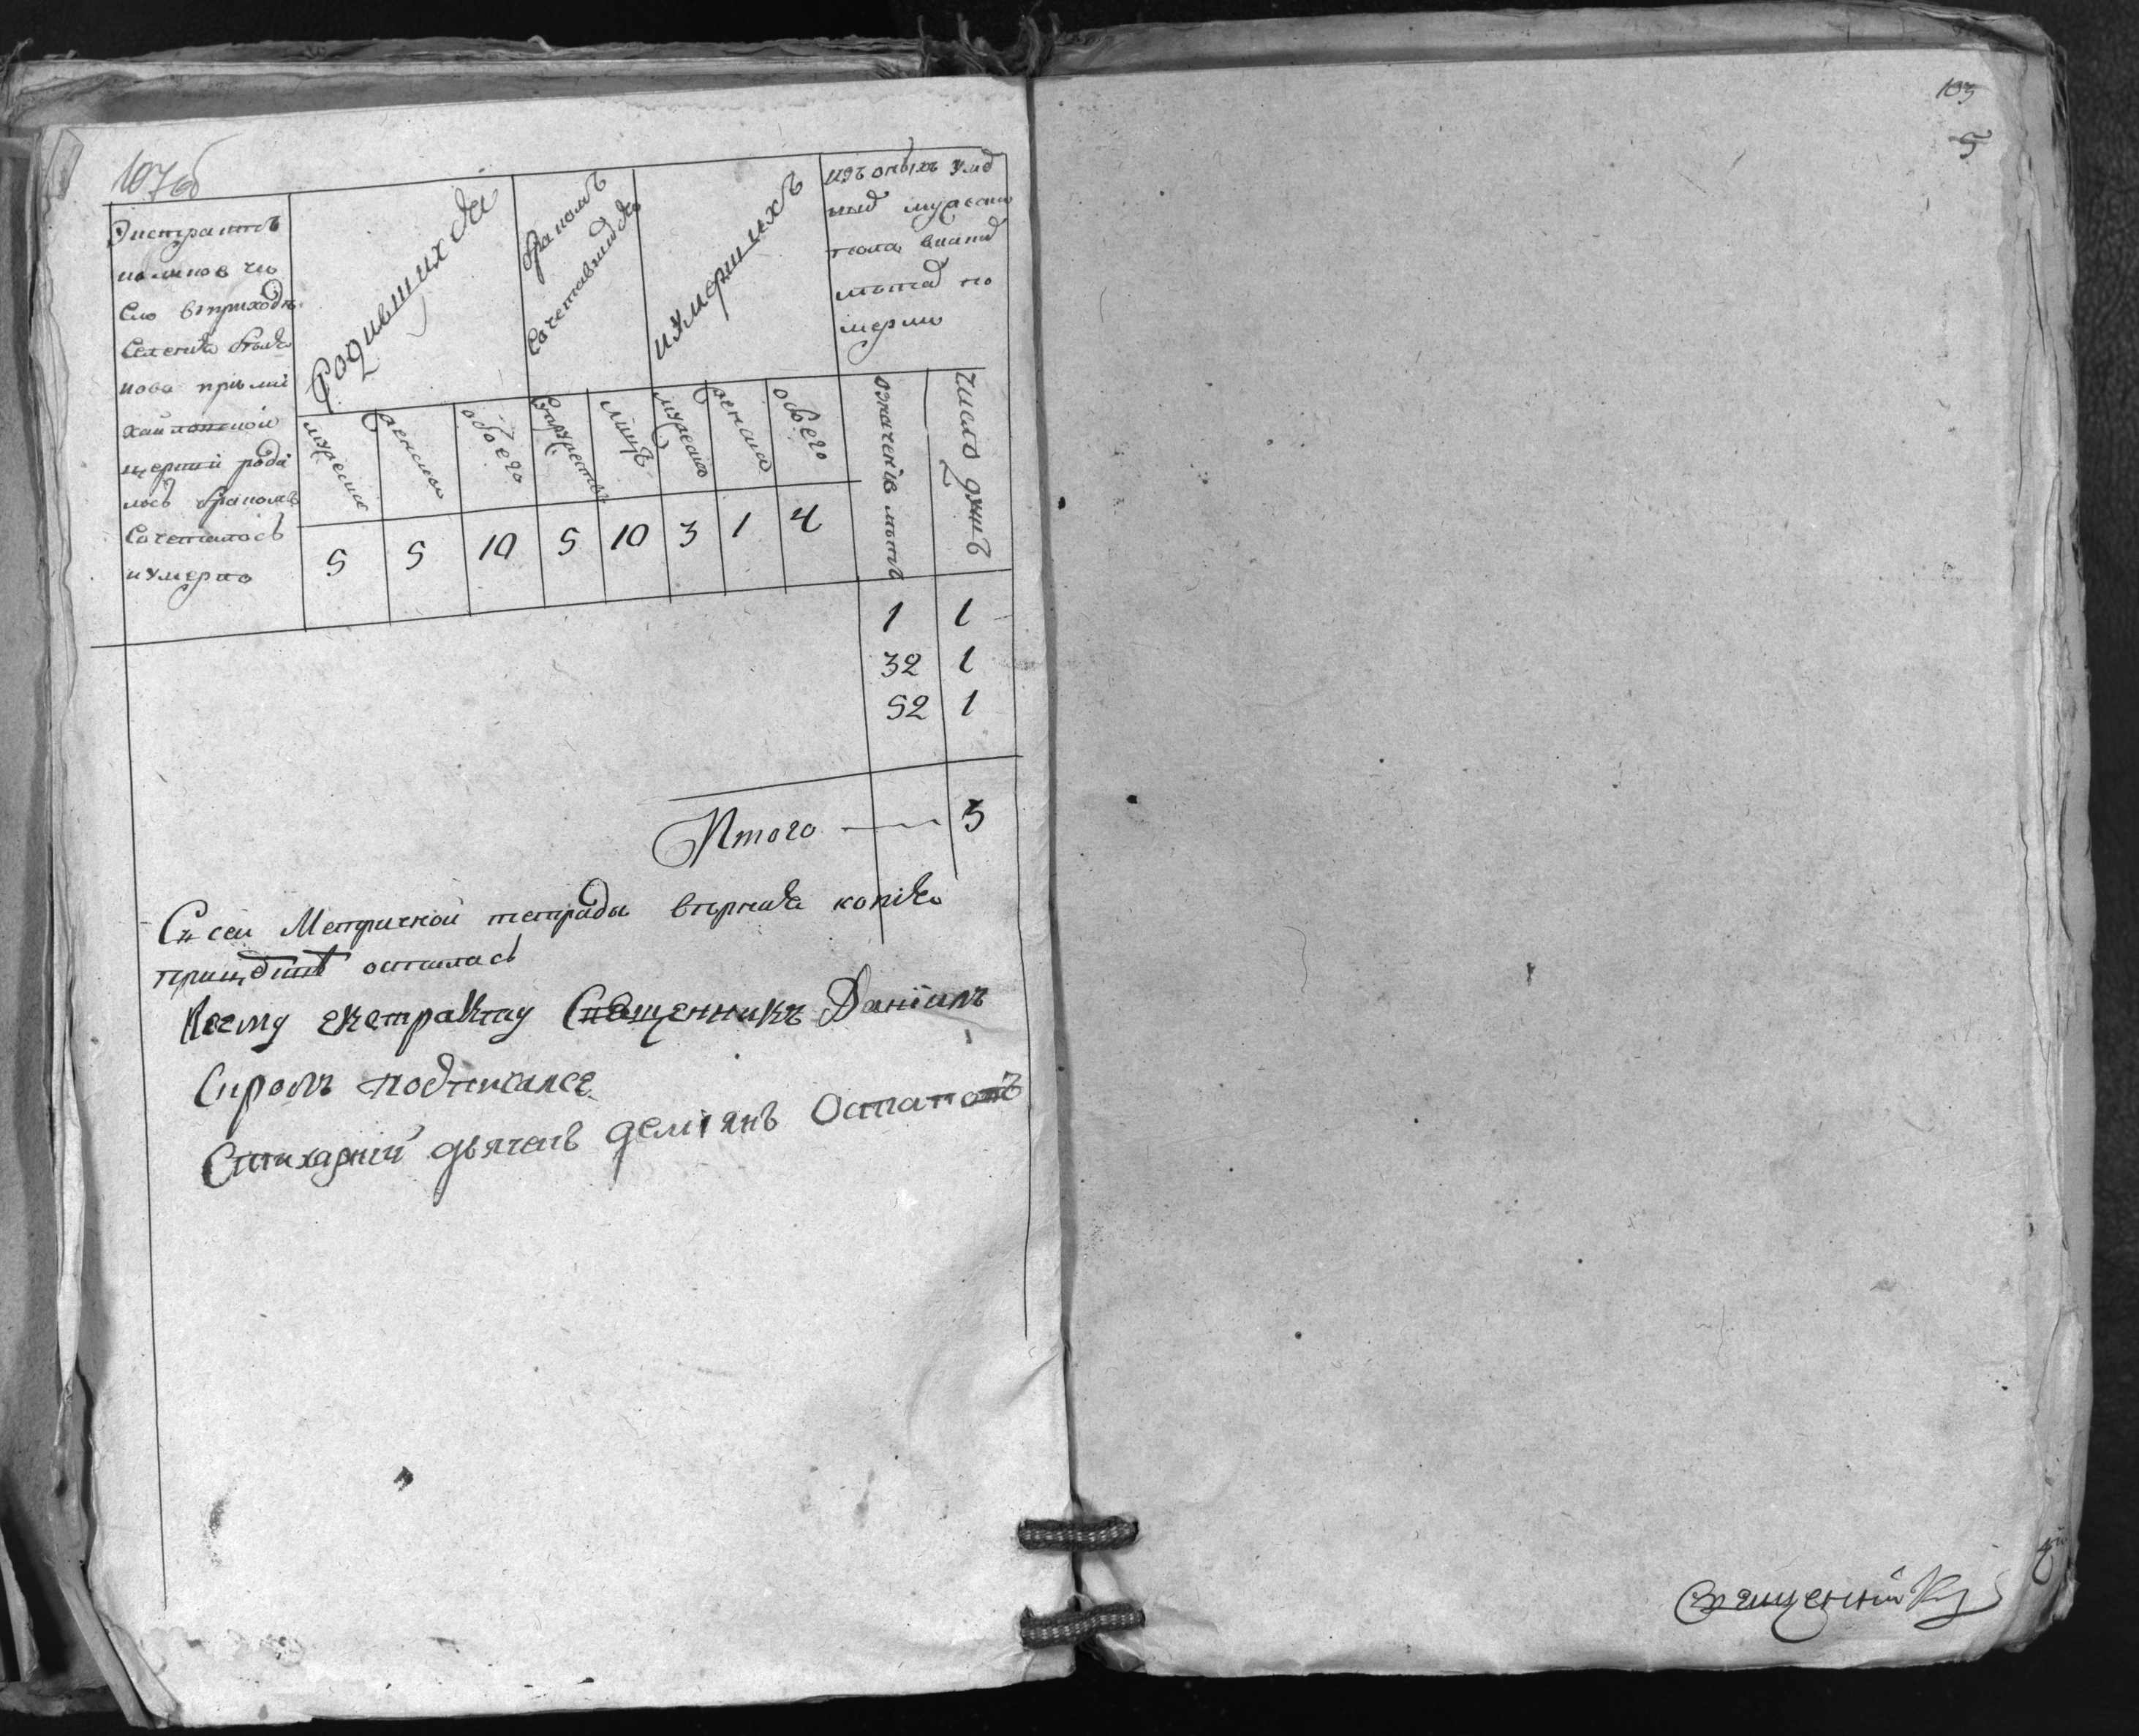 107об
Экстрактъ
коликов чи
сло в приходѣ
селения
нова при ми
хайловской
церкви роди
лось браколъ
сочеталось
и умерло
Родившихся
браколъ
сочетавшихся
и умершихъ
изъ оныхъ умер
мужеска
пола
мерло
мужеска
женска
обоего
супружествъ
лицъ
мужеска
женска
обоего
означение летъ
число душъ
5 5 10 5 10 3 1 4
1 1
32 1
52 1
Итого 3
С сей Метричной тетради вѣрная копія
при осталась
К сему екстракту Священникъ Даніилъ
подписался
Стихарний дьячекъ Деміянъ
103
5
священникъ